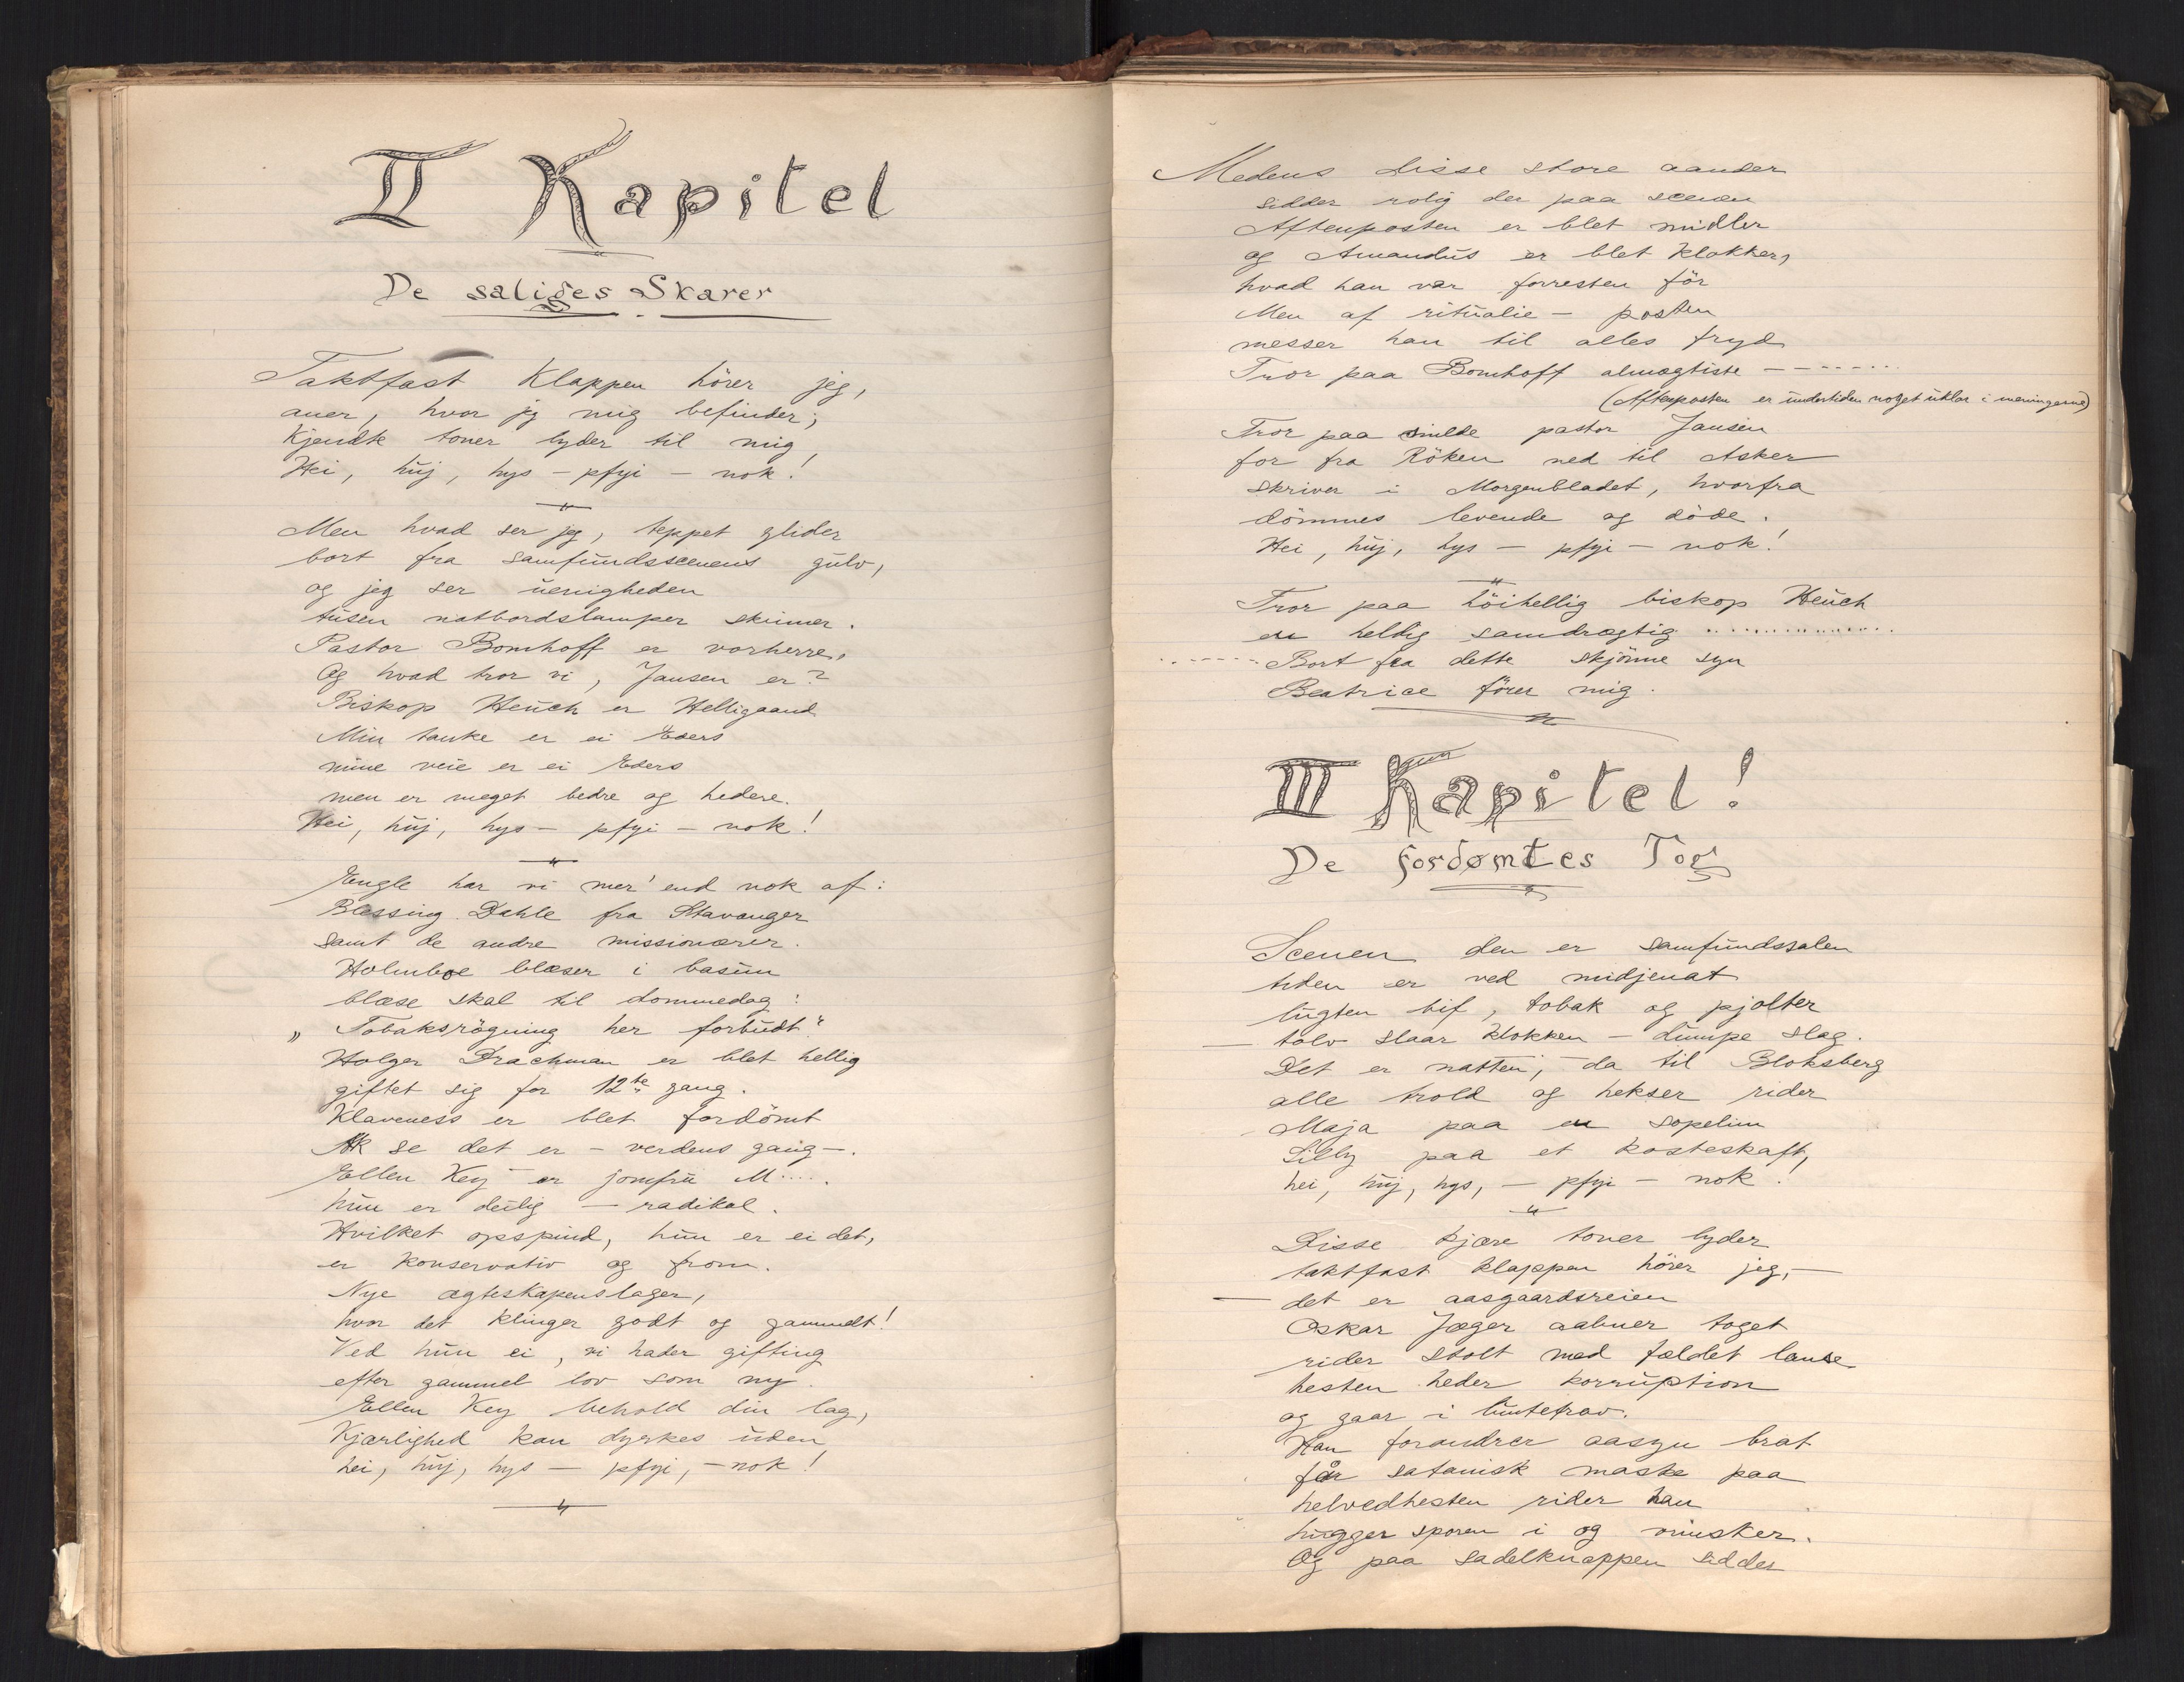 II Kapitel
De saliges Skarer
Taktfast Klappen hörer jeg,
aner, hvor jeg mig befinder;
Kjendte toner lyder til mig
Hei, hüj, hys – pfyi – nok!
Men hvad ser jeg, teppet glider
bort fra samfundsscenens gulv,
og jeg ser uenigheden
tusen natbordslamper skinner.
Pastor Bomhoff er vorherre,
Og hvad tror vi, Jansen er?
Biskop Heuch er Helligaand
Min tanke er ei Eders
mine veie er ei Eders
men er meget bedre og hedere.
Hei, hüj, hys – pfyi – nok!
Engle har vi mer' end nok af:
Blessing Dahle fra Stavanger
samt de andre missionærer.
Holmboe blæser i basun
blæse skal til dommedag:
„Tobaksrögning her forbudt"
Holger Drachman er blet hellig
giftet sig for 12te gang.
Klaveness er blet fordömt
Ak se det er – verdens gang –.
Ellen Key er jomfru M.....
hun er deilig – radikal.
Hvilket opspind, hun er ei det,
er konservativ og from.
Nye ægteskapenslager,
hvor det klinger godt og gammelt!
Ved hun ei, vi hader gifting
efter gammel lov som ny.
Ellen Key behold din lag,
Kjærlighed kan dyrkes uden
hei, hüj, hys – pfyi, – nok!
Medens disse store aander
sidder rolig der paa scenen
Aftenposten er blet midler
og Amandus er blet klokker,
hvad han var forresten för
Men af ritualie – posten
messer han til alles fryd
Tror paa Bomhoff almægtiste – – – – – –
(Aftenposten er undertiden noget uklar i meningerne)
Tror paa milde pastor Jansen
for fra Röken ned til Asker
skriver i Morgenbladet, hvorfra
dömmes levende og döde.
Hei, hüj, hys – pfyi – nok!
Tror paa höihellig biskop Heuch
en heldig samdrægtig ..............
....... Bort fra dette skjönne syn
Beatrice förer mig.
III Kapitel!
De fordømtes Tog
Scenen den er samfundssalen
tiden er ved midjenat
lugten bif, tobak og pjolter
– tolv slaar klokken – dumpe slag.
Det er natten, da til Bloksberg
alle trold og hekser rider
Maja paa en sopelim
Lilly paa et kosteskaft,
hei, hüj, hys, – pfyi – nok!
Disse kjære toner lyder
taktfast klappen hörer jeg, –
– det er aasgaardsreien
Oskar Jæger aabner toget
rider stolt med fældet lanse
hesten heder korruption
og gaar i luntetrav.
Han forandrer aasyn brat
får satanisk maske paa
helvedhesten rider han
hugger sporen i og vrinsker.
Og paa sadelknappen sidder